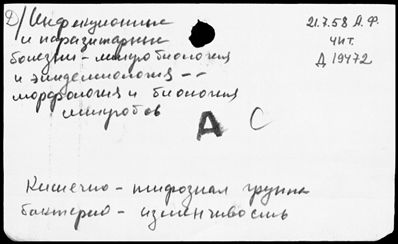 Д/ Инфекционные
и паразитарные
болезни - микробиология
и эпидемиология --
морфология и биология
микробов
21.7.58 А.Ф.
чит.
Д 19472
А С
Кишечно - тифозная группа
бактерий - изменчивость